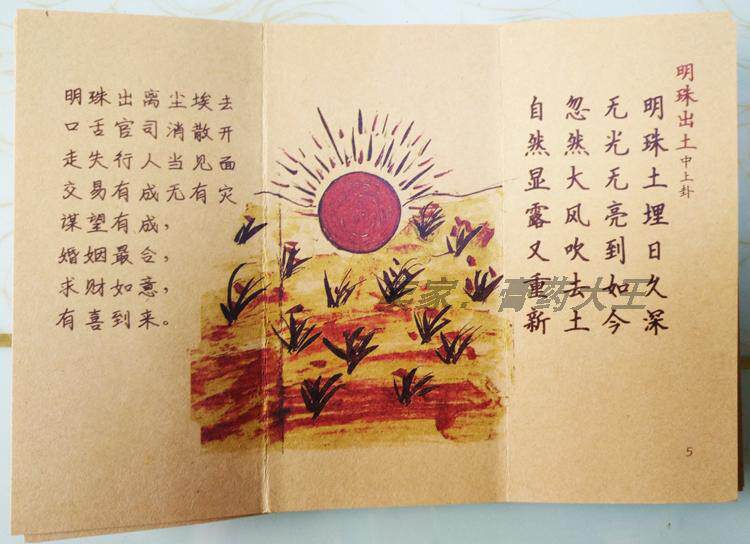 明珠出土 中上卦
明珠土埋日久深
无光无亮到如今
忽然大风吹去土
自然显露又重新
5
明珠出离尘埃去
口舌官司消散开
走失行人当见面
交易有成无有灾
谋望有成，
婚姻最合，
求财如意，
有喜到来。
家：膏药大王